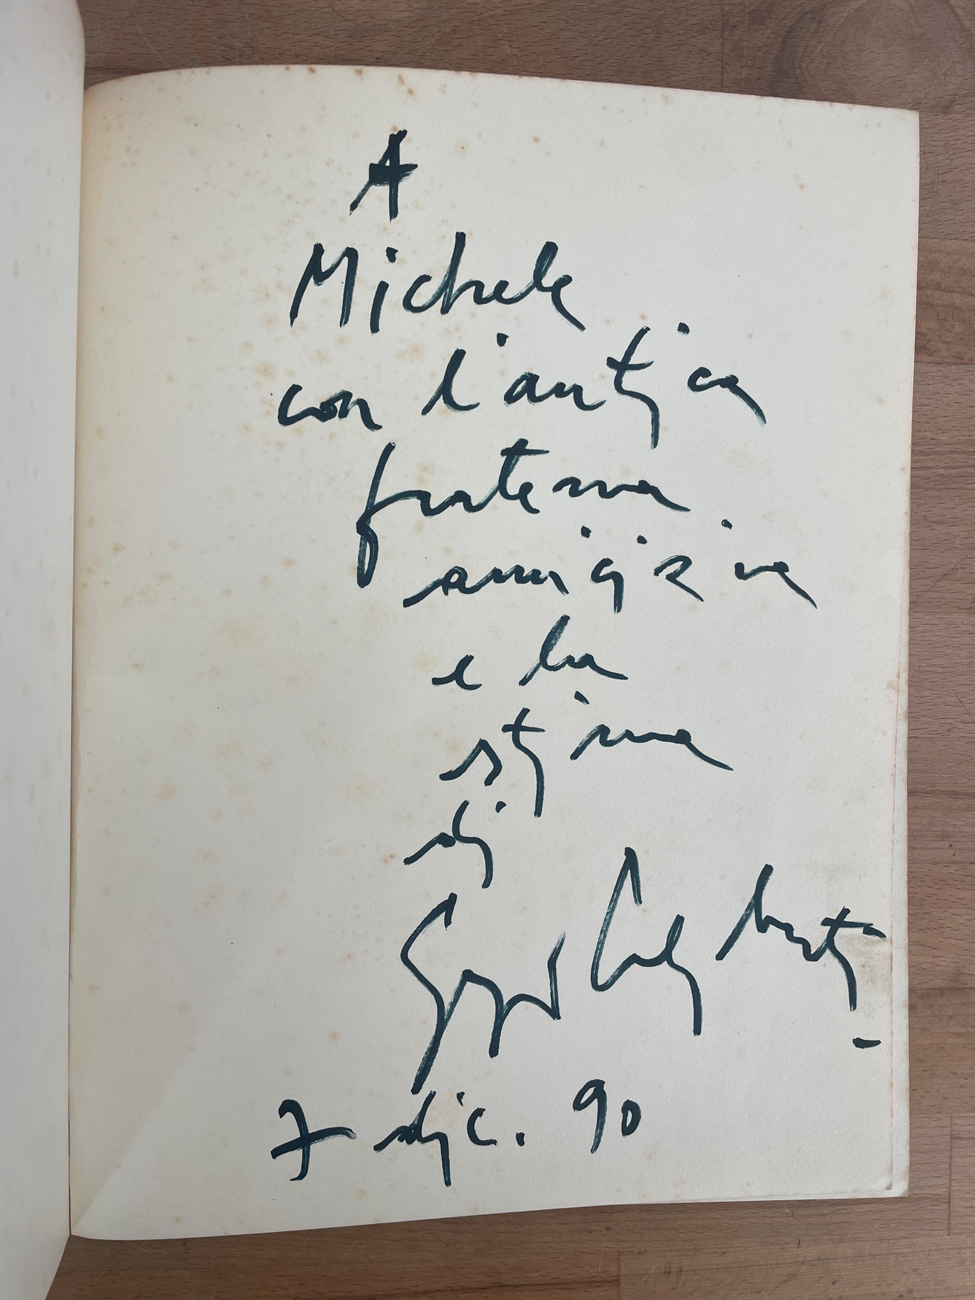 A
Michele
con l'antica
fraterna
amicizia
e la
stima
di
7 dic. 90